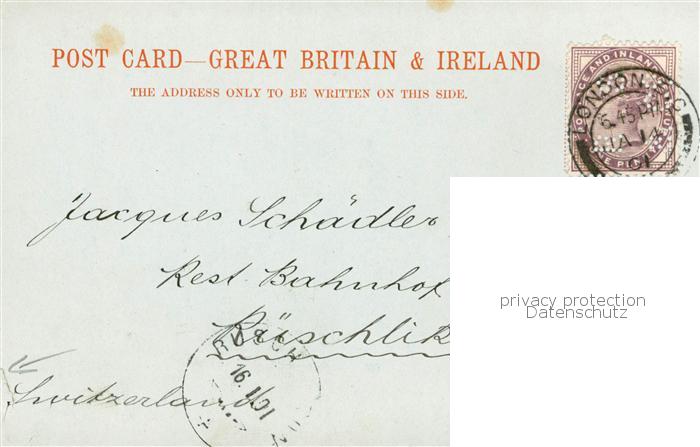 POST CARD—GREAT BRITAIN & IRELAND
THE ADDRESS ONLY TO BE WRITTEN ON THIS SIDE.
POSTAGE AND INLAND REVENUE
ONE PENNY
LONDON. E.C
6.45 PM
JA 14
01
Jacques Schädler
Rest. Bahnhof
Rüschlik
Switzerland
16. I 01
privacy protection
Datenschutz